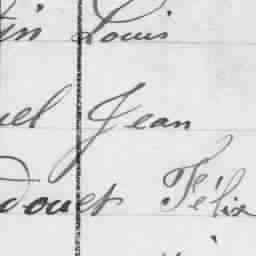 in Louis
uel Jean
douet Félix